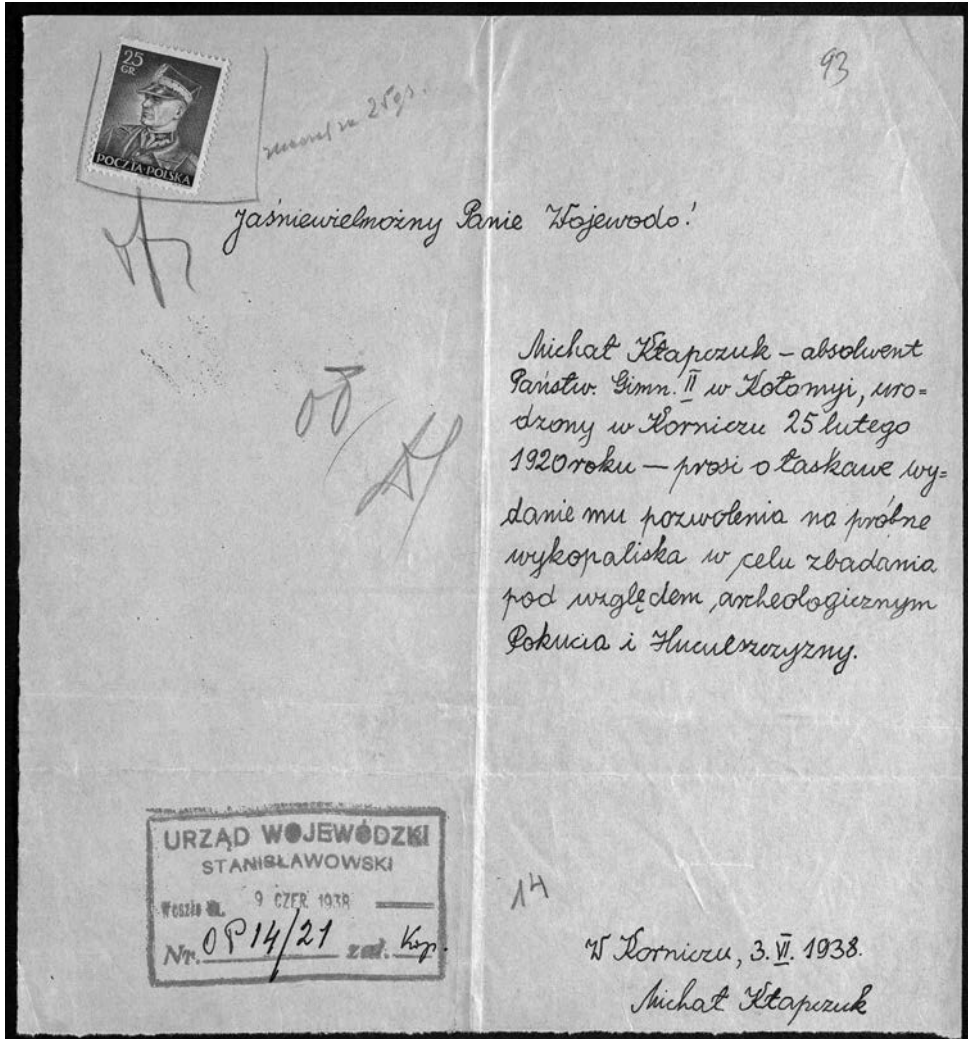 25
GR.
POCZTA·POLSKA
93
25 gr.
Jaśniewielmożny Panie Wojewodo!
Michał Kłapczuk – absolwent
Państw. Gimn. II w Kołomyi, uro=
dzony w Korniczu 25 lutego
1920 roku — prosi o łaskawe wy=
danie mu pozwolenia na próbne
wykopaliska w celu zbadania
pod względem archeologicznym
Pokucia i Huculszczyzny.
URZĄD WOJEWÓDZKI
STANISŁAWOWSKI
Weszło dn. 9 CZER. 1938
Nr. OP 14/21 zał. Kop.
14
W Korniczu, 3. VI. 1938.
Michał Kłapczuk